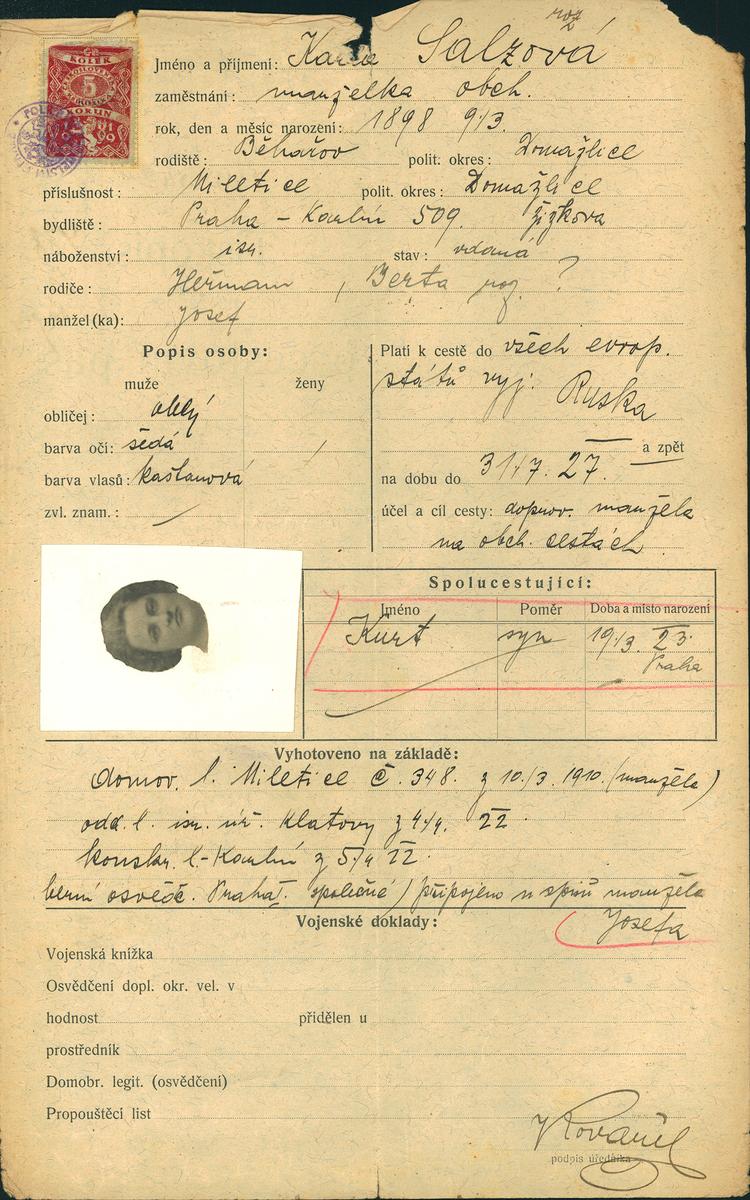 roz
KOLEK
ČESKOSLOVENSKÝ
5
KORUN
Jméno a příjmení: Karla Salzová
zaměstnání: manželka obch.
rok, den a měsíc narození: 1898 9/3.
rodiště: Běhařov polit. okres: Domažlice
příslušnost: Miletice polit. okres: Domažlice
bydliště: Praha - Karlín 509. Žižkova
náboženství: isr. stav: vdaná
rodiče: Heřmann, Berta roz. ?
manžel(ka): Josef
Popis osoby:
muže ženy
obličej: oblý
barva očí: šedá
barva vlasů: kaštanová
zvl. znam.: —
Platí k cestě do všech evrop.
států vyj. Ruska
a zpět
na dobu do 31/7. 27.
účel a cíl cesty: doprov. manžela
na obch. cestách
Spolucestující:
Jméno Poměr Doba a místo narození
Kurt syn 19/3. 23.
Praha
Vyhotoveno na základě:
domov. l. Miletice č. 348. z 10./3. 1910. (manžela)
odd. l. isr. úř. Klatovy z 4/4. 22.
konskr. l. - Karlín z 5/4 22.
berní osvěd. Praha I. společné) připojeno u spisů manžela
Josefa
Vojenské doklady:
Vojenská knížka
Osvědčení dopl. okr. vel. v
hodnost přidělen u
prostředník
Domobr. legit. (osvědčení)
Propouštěcí list
podpis úředníka